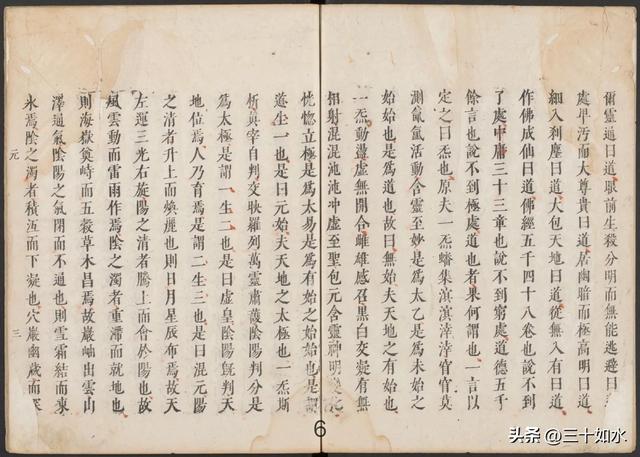 爾靈通曰道眼前生殺分明而無能逃避曰道
處卑汚而大尊貴曰道居幽暗而極高明曰道
細入刹塵曰道大包天地曰道從無入有曰道
作佛成仙曰道佛經五千四十八卷也說不到
了處中庸三十三章也說不到窮處道德五千
餘言也說不到極處道也者果何謂也一言以
定之曰炁也原夫一炁蟠集溟溟涬涬窅窅莫
測氤氳活動含靈至妙是爲太乙是爲未始之
始始也是爲道也故曰無始夫天地之有始也
一炁動盪虛無開合雌雄感召黑白交凝有無
相射混混沌沌冲虛至聖包元含靈神明變化
恍惚立極是爲太易是爲有始之始始也是謂
道生一也是曰元始夫天地之太極也一炁斯
析眞宰自判交映羅列萬靈肅護陰陽判分是
爲太極是謂一生二也是曰虛皇陰陽旣判天
地位焉人乃育焉是謂二生三也是曰混元陽
之清者升上而煥麗也則日月星辰布焉故天
左運三光右旋陽之清者騰上而會於陽也故
風雲動而雷雨作焉陰之濁者重滯而就地也
則海嶽奠峙而五穀草木昌焉故巖岫出雲山
澤通氣陰陽之氣閉而不通也則雪霜結而凍
氷焉陰之濁者積沍而下凝也穴巖幽藏而深
元 三
6
头条 @三十如水